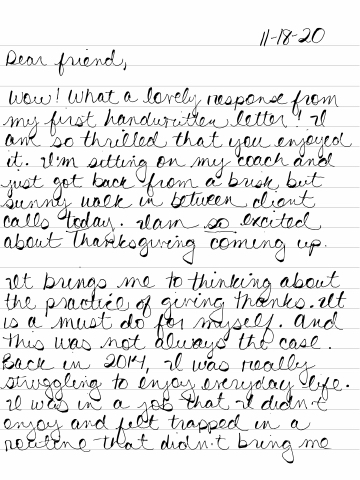 11-18-20
Dear friend,
Wow! What a lovely response from
my first handwritten letter! I
am so thrilled that you enjoyed
it. I'm sitting on my coach and
just got back from a brisk but
sunny walk in between client
calls today. I am so excited
about Thanksgiving coming up.
It brings me to thinking about
the practice of giving thanks. It
is a must do for myself. And
this was not always the case.
Back in 2014, I was really
struggling to enjoy everyday life.
I was in a job that I didn't
enjoy and felt trapped in a
routine that didn't bring me